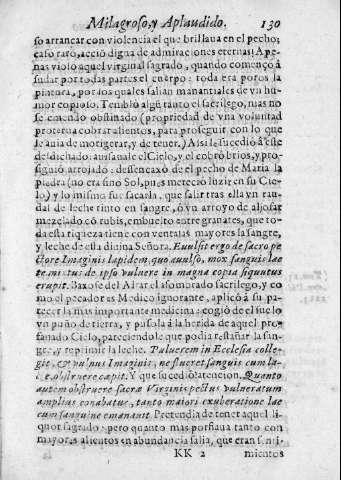 Milagroso, y Aplaudido. 130
so arrancar con violencia el que brillaua en el pecho;
caso raro, acciō digna de admiraciones eternas! Ape-
nas violò aquel virginal sagrado, quando començò à
sudar por todas partes el cuerpo: toda era poros la
pintura, por los quales salian manantiales de vn hu-
mor copioso. Temblò algū tanto el sacrilego, mas no
se emendò obstinado (propriedad de vna voluntad
proterua cobrar alientos, para proseguir con lo que
le auia de motigerar, y de tener.) Assi le sucediò à este
desdichado: auisauale el Cielo, y el cobrò brios, y pro-
siguiò arrojado: desencaxò de el pecho de Maria la
piedra (no era sino Sol, pues mereciò luzir en su Cie-
lo) y lo mismo fue sacarla, que salir tras ella vn rau-
dal de leche tinto en sangre, ò vn arroyo de aljofar
mezclado cō rubis, embuelto entre granates, que to-
da esta riqueza tiene con ventajas mayores la sangre,
y leche de esta diuina Señora. Euulsit ergo de sacro pe
ctore Imaginis lapidem, quo auulso, mox sanguis lac
te mixtus de ipso vulnere in magna copia siquutus
erupit. Baxose del Altar el assombrado sacrilego, y co
mo el pecador es Medico ignorante, aplicò à su pa-
recer la mas importante medicina: cogiò de el suelo
vn puño de tierra, y pusola à la herida de aquel pro-
fanado Cielo, pareciendole que podia restañar la san-
gre, y reprimir la leche. Puluerem in Ecclesia colle-
git, & vulnus Imaginis, ne flueret sanguis cum lac-
te obstruere cæpit. Y que sucediò? atencion. Quanto
autem obstruere sacræ Virginis pectus vulneratum
amplius conabatur, tanto maiori exuberatione lac
cum sanguine emanauit. Pretendia detener aquel li-
quor sagrado; pero quanto mas porfiaua tanto con
mayores alientos en abundancia salia, que eran senti-
KK 2 mientos